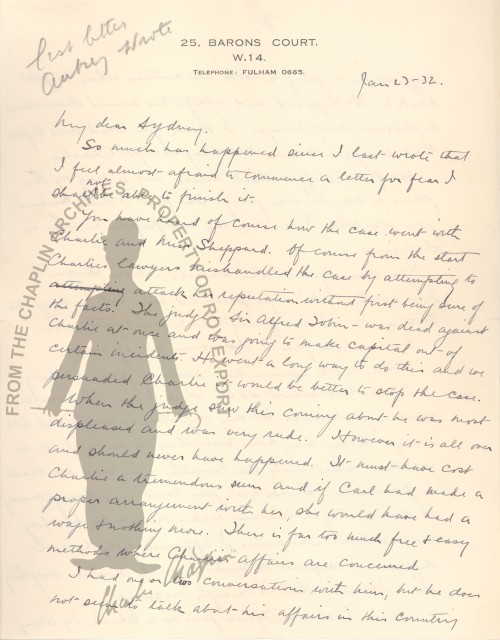 last letter
Aubrey Wrote
25, BARONS COURT,
W.14.
TELEPHONE: FULHAM 0665.
Jan 23-32.
My dear Sydney.
So much has happened since I last wrote that
I feel almost afraid to commence a letter for fear I
shall not be able to finish it.
You have heard of course how the case went with
Charlie and Miss Sheppard. Of course from the start
Charlies lawyers mishandled the case by attempting to
attempting attack his reputation without first being sure of
the facts. The judge - Sir Alfred Tobin - was dead against
Charlie at once and was going to make capital out of
certain incidents. He went a long way to do this and we
persuaded Charlie it would be better to stop the case.
When the judge saw this coming about he was most
displeased and was very rude. However it is all over
and should never have happened. It must have cost
Charlie a tremendous sum and if Carl had made a
proper arrangement with her, she would have had a
wage & nothing more. There is far too much free & easy
methods where Charlie's affairs are concerned
I had one or two conversations with him, but he does
not seem to talk about his affairs in this country
FROM THE CHAPLIN ARCHIVES, PROPERTY OF ROY EXPORT
Charles Chaplin